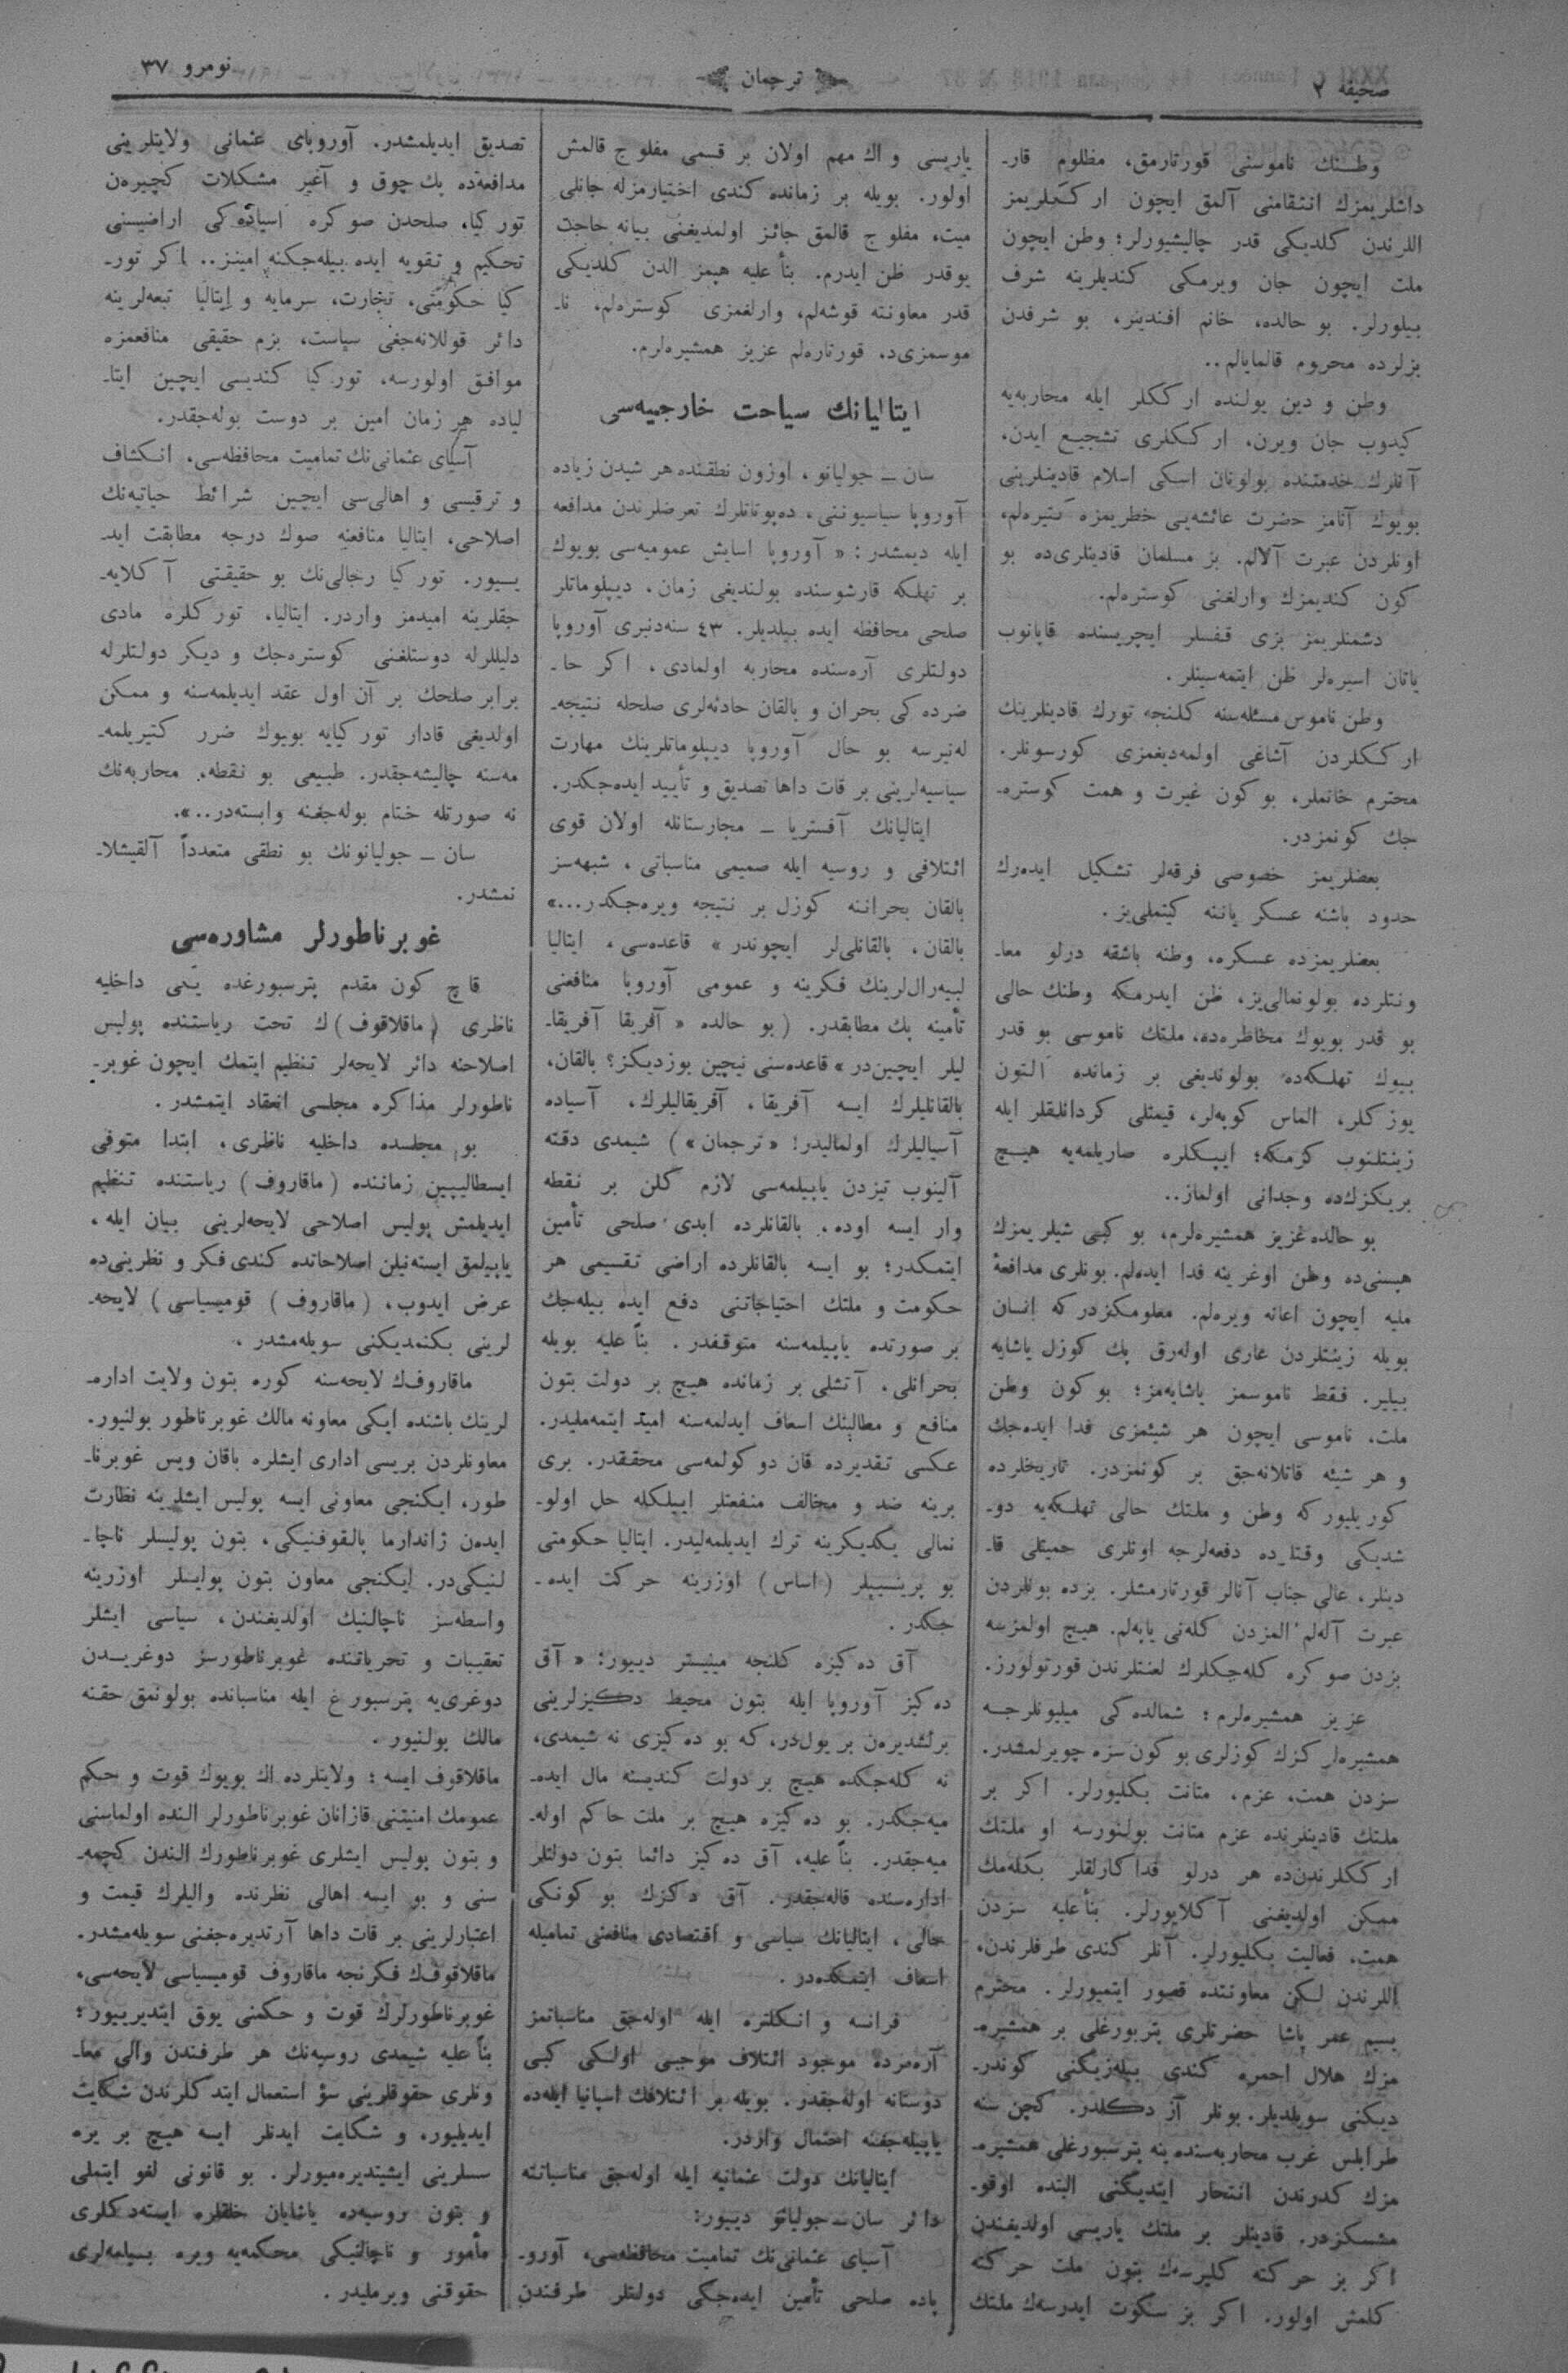 صحیفه ۲
ترجمان
نومرو ۳۷
وطــنك ناموسنی قورتارمق، مظلوم قار-
داشلریمزك انتقامنی آلمق ایچون ارككلریمز
اللرندن كلدیكی قدر چالیشیورلر؛ وطن ایچون
ملت ایچون جان ویرمكی كندیلرینه شرف
بیلورلر. بو حالده، خانم افندیلر، بو شرفدن
بزلرده محروم قالمایالم..
وطن و دین یولنده ارككلر ایله محاربه‌یه
كیدوب جان ویرن، ارككلری تشجیع ایدن،
آنلرك خدمتنده بولونان اسكی اسلام قادینلرینی
بویوك آنامز حضرت عائشه‌یی خطریمزه كتیره‌لم،
اونلردن عبرت آلالم. بز مسلمان قادینلری‌ده بو
كون كندیمزك وارلغنی كوستره‌لم.
دشمنلریمز بزی قفسلر ایچریسنده قاپانوب
یاتان اسیره‌لر ظن ایتمه‌سینلر.
وطن ناموس مسئله‌سنه كلنجه تورك قادینلرینك
ارككلردن آشاغی اولمه‌دیغمزی كورسونلر.
محترم خانملر، بو كون غیرت و همت كوستره-
جك كونمزدر.
بعضلریمز خصوصی فرقه‌لر تشكیل ایده‌رك
حدود باشنه عسكر یاننه كیتملی‌یز.
بعضلریمزده عسكره، وطنه باشقه درلو معا-
ونتلرده بولونمالی‌یز، ظن ایدرمكه وطنك حالی
بو قدر بویوك مخاطره‌ده، ملتك ناموسی بو قدر
بیوك تهلكه‌ده بولوندیغی بر زمانده آلتون
یوزكلر، الماس كوپه‌لر، قیمتلی كردانلیقلر ایله
زینتلنوب كزمكه؛ ایپكلره صاریلمه‌یه هیــچ
بریكزك‌ده وجدانی اولماز..
بو حالده عزیز همشیره‌لرم، بو كبی شیلریمزك
هپسنی‌ده وطن اوغرینه فدا ایده‌لم. بونلری مدافعهٔ
ملیه ایچون اعانه ویره‌لم. معلومكزدر كه انسان
بویله زینتلردن عاری اوله‌رق پك كوزل یاشایه
بیلیر. فقط ناموسمز یاشایه‌مز؛ بو كون وطن
ملت، ناموسی ایچون هر شیئمزی فدا ایده‌جك
و هر شیئه قاتلانه‌جق بر كونمزدر. تاریخلرده
كوریلیور كه وطن و ملتك حالی تهلكه‌یه دو-
شدیكی وقتلرده دفعه‌لرجه اونلری حمیتلی قا-
دینلر، عالی جناب آنالر قورتارمشلر. بزده بونلردن
عبرت آله‌لم المزدن كله‌نی یاپه‌لم. هیچ اولمزسه
بزدن صوكره كله‌جكلرك لعنتلرندن قورتولورز.
عزیز همشیره‌لرم؛ شمالده‌كی میلیونلرجــه
همشیره‌لركزك كوزلری بو كون سزه چویرلمشدر.
سزدن همت، عزم، متانت بكلیورلر. اكر بر
ملتك قادینلرنده عزم متانت بولنورسه او ملتك
ارككلرندن‌ده هر درلو فداكارلقلر بكله‌مك
ممكن اولدیغنی آكلایورلر. بنأعلیه سزدن
همت، فعالیت بكلیورلر. آنلر كندی طرفلرندن،
اللرندن لـكن معاونتده قصور ایتمیورلر. محترم
بسیم عمر پاشا حضرتلری پتربورغلی بر همشیره-
مزك هلال احمره كندی بیله‌زیكنی كوندر-
دیكنی سویلدیلر. بونلر آز دكلدر. كچن سنه
طرابلس غرب محاربه‌سنده ینه پترسبورغلی همشیره-
مزك كدرندن انتحار ایتدیكنی البتده اوقو-
مشسكزدر. قادینلر بر ملتك یاریسی اولدیغندن
اكر بز حركته كلیرسه‌ك بتون ملت حركته
كلمش اولور. اكر بز سكوت ایدرسه‌ك ملتك
یاریسی و اك مهم اولان بر قسمی مفلوج قالمش
اولور. بویله بر زمانده كندی اختیارمزله جانلی
میت، مفلوج قالمق جائز اولمدیغنی بیانه حاجت
یوقدر ظن ایدرم. بنأ علیه هپمز الدن كلدیكی
قدر معاونته قوشه‌لم، وارلغمزی كوستره‌لم، نا-
موسمزی‌ده قورتاره‌لم عزیز همشیره‌لرم.
ایتالیانك سیاحت خارجیه‌سی
سان ـ جولیانو، اوزون نطقنده هر شیدن زیاده
آوروپا سیاسیوننی، ده‌پوتاتلرك تعرضلرندن مدافعه
ایله دیمشدر: « آوروپا آسایش عمومیه‌سی بویوك
بر تهلكه قارشوسنده بولندیغی زمان، دیپلوماتلر
صلحی محافظه ایده بیلدیلر. ٤٣ سنه‌دنبری آوروپا
دولتلری آره‌سنده محاربه اولمادی، اكر حا-
ضرده‌كی بحران و بالقان حادثه‌لری صلحله نتیجه-
له‌نیرسه بو حال آوروپا دیپلوماتلرینك مهارت
سیاسیه‌لرینی بر قات داها تصدیق و تأیید ایده‌جكدر.
ایتالیانك آفستریا ـ مجارستانله اولان قوی
ائتلافی و روسیه ایله صمیمی مناسباتی، شبهه‌سز
بالقان بحراننه كوزل بر نتیجه ویره‌جكدر...»
بالقان، بالقانلی‌لر ایچوندر» قاعده‌سی، ایتالیا
لیبه‌رال‌لرینك فكرینه و عمومی آوروپا منافعنی
تأمینه پك مطابقدر. (بو حالده « آفریقا آفریقا-
لیلر ایچین‌در» قاعده‌سنی نیچین بوزدیكز؟ بالقان،
بالقانلیلرك ایسه آفریقا، آفریقالیلرك، آسیاده
آسیالیلرك اولمالیدر! «ترجمان») شیمدی دقته
آلینوب تیزدن یاپیلمه‌سی لازم كلن بر نقطه
وار ایسه اوده، بالقانلرده ابدی صلحی تأمین
ایتمكدر؛ بو ایسه بالقانلرده اراضی تقسیمی هر
حكومت و ملتك احتیاجاتنی دفع ایده بیله‌جك
بر صورتده یاپیلمه‌سنه متوقفدر. بنأ علیه بویله
بحرانلی، آتشلی بر زمانده هیچ بر دولت بتون
منافع و مطالبنك اسعاف ایدلمه‌سنه امید ایتمه‌ملیدر.
عكسی تقدیرده قان دوكولمه‌سی محققدر. بری
برینه ضد و مخالف منفعتلر ایپلكله حل اولو-
نمالی یكدیكرینه ترك ایدیلمه‌لیدر. ایتالیا حكومتی
بو پرینسیپلر (اساس) اوزرینه حركت ایده-
جكدر.
آق ده‌كیزه كلنجه مینیستر دییور: « آق
ده‌كیز آوروپا ایله بتون محیط دكیزلرینی
برلشدیره‌ن بر یول‌در، كه بو ده‌كیزی نه شیمدی،
نه كله‌جكده هیچ بر دولت كندیسنه مال ایده-
میه‌جكدر. بو ده‌كیزه هیچ بر ملت حاكم اوله-
میه‌جقدر. بنأ علیه، آق ده‌كیز دائما بتون دولتلر
اداره‌سنده قاله‌جقدر. آق دكزك بو كونكی
حالی، ایتالیانك سیاسی و اقتصادی منافعنی تمامیله
اسعاف ایتمكده‌در.
فرانسه و انـكلتره ایله اوله‌جق مناسباتمز
آره‌مزده موجود ائتلاف موجبی اولكی كبی
دوستانه اوله‌جقدر. بویله بر ائتلافك اسپانیا ایله‌ده
یاپیله‌جغنه احتمال واردر.
ایتالیانك دولت عثمانیه ایله اوله‌جق مناسباتنه
دائر سان ـ جولیانو دییور:
آسیای عثمانی‌نك تمامیت محافظه‌سی، آورو-
پاده صلحی تأمین ایده‌جكی دولتلر طرفندن
تصدیق ایدیلمشدر. آوروپای عثمانی ولایتلرینی
مدافعه‌ده پك چوق و آغیر مشكلات كچیره‌ن
توركیا، صلحدن صوكره اسیاده‌كی اراضیسنی
تحكیم و تقویه ایده بیله‌جكنه امینز.. اكر تور-
كیا حكومتی، تجارت، سرمایه و ایتالیا تبعه‌لرینه
دائر قوللانه‌جغی سیاست، بزم حقیقی منافعمزه
موافق اولورسه، توركیا كندیسی ایچین ایتا-
لیاده هر زمان امین بر دوست بوله‌جقدر.
آسیای عثمانی‌نك تمامیت محافظه‌سی، انـكشاف
و ترقیسی و اهالی‌سی ایچین شرائط حیاتیه‌نك
اصلاحی، ایتالیا منافعنه صوك درجه مطابقت اید-
یــیور. توركیا رجالی‌نك بو حقیقتی آكلایه-
جقلرینه امیدمز واردر. ایتالیا، توركلره مادی
دلیللرله دوستلغنی كوستره‌جك و دیكر دولتلرله
برابر صلحك بر آن اول عقد ایدیلمه‌سنه و ممكن
اولدیغی قادار توركیایه بویوك ضرر كتیریلمه-
مه‌سنه چالیشه‌جقدر. طبیعی بو نقطه، محاربه‌نك
نه صورتله ختام بوله‌جغنه وابسته‌در..».
سان ـ جولیانونك بو نطقی متعدداً آلقیشلا-
نمشدر.
غوبرناطورلر مشاوره‌سی
قاچ كون مقدم پترسبورغده یكی داخلیه
ناظری (ماقلاقوف)ك تحت ریاستنده پولیس
اصلاحنه دائر لایحه‌لر تنظیم ایتمك ایچون غوبر-
ناطورلر مذاكره مجلسی انعقاد ایتمشدر.
بو مجلسده داخلیه ناظری، ابتدا متوفی
ایسطالیپین زماننده (ماقاروف) ریاستنده تنظیم
ایدیلمش پولیس اصلاحی لایحه‌لرینی بیان ایله،
یاپیلمق ایسته‌نیلن اصلاحاتده كندی فكر و نظرینی‌ده
عرض ایدوب، (ماقاروف) قومیسیاسی) لایحه-
لرینی بكنمدیكنی سویله‌مشدر.
ماقاروفك لایحه‌سنه كوره بتون ولایت اداره-
لرینك باشنده ایكی معاونه مالك غوبرناطور بولنیور.
معاونلردن بریسی اداری ایشلره باقان ویس غوبرنا-
طور، ایكنجی معاونی ایسه پولیس ایشلرینه نظارت
ایده‌ن ژاندارما پالقوفنیكی، بتون پولیسلر ناچا-
لنیكی‌در. ایكنجی معاون بتون پولیسلر اوزرینه
واسطه‌سز ناچالنیك اولدیغندن، سیاسی ایشلر
تعقیبات و تحریاتنده غوبرناطورسز دوغریــدن
دوغری‌یه پترسبورغ ایله مناسباتده بولونمق حقنه
مالك بولنیور.
ماقلاقوف ایسه؛ ولایتلرده اك بویوك قوت و حكم
عمومك امنیتنی قازانان غوبرناطورلر النده اولماسنی
و بتون پولیس ایشلری غوبرناطورك الندن كچمه-
سنی و بو ایسه اهالی نظرنده والیلرك قیمت و
اعتبارلرینی بر قات داها آرتدیره‌جغنی سویله‌مشدر.
ماقلاقوفك فكرنجه ماقاروف قومیسیاسی لایحه‌سی،
غوبرناطورلرك قوت و حكمنی یوق ایتدیرییور؛
بنأ علیه شیمدی روسیه‌نك هر طرفندن والی معا-
ونلری حقوقلرینی سؤ استعمال ایتدكلرندن شكایت
ایدیلیور، و شكایت ایدنلر ایسه هیچ بر یزه
سسلرینی ایشیتدیره‌میورلر. بو قانونی لغو ایتملی
و بتون روسیه‌ده یاشایان خلقلره ایسته‌دكلری
مأمور و ناچالنیكی محكمه‌یه ویره بیلمه‌لری
حقوقنی ویرملیدر.